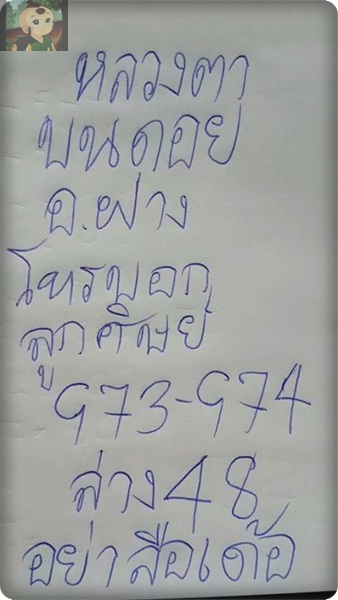 หลวงตา
บนดอย
อ.ฝาง
โทรบอก
ลูกศิษย์
973-974
ล่าง48
อย่าลือเด้อ